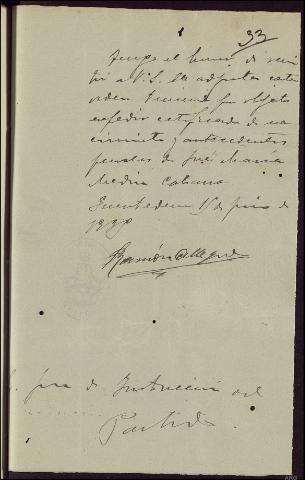 33
Tengo el honor de remi
tir a V.S. las adjuntas carta
orden por objeto
expedir certificado de na
cimiento y antecedentes
penales de José María
Medina
15 de junio de
Ramón Gallego
Juez de Instrucción del
Partido.